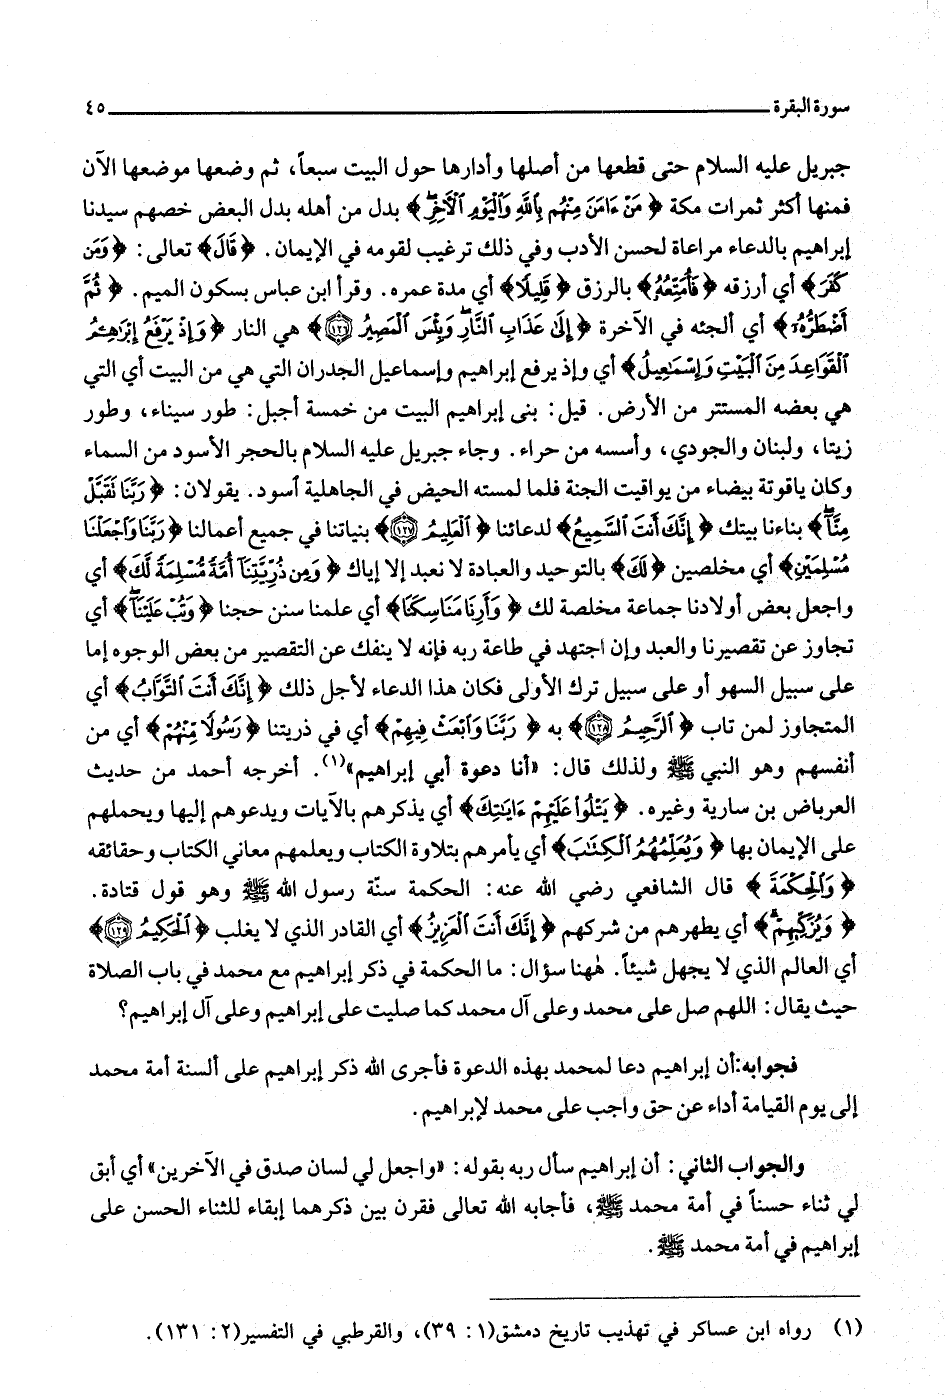 سورة البقرة ٤٥
جبريل عليه السلام حتى قطعها من أصلها وأدارها حول البيت سبعاً، ثم وضعها موضعها الآن
فمنها أكثر ثمرات مكة ﴿مَنْ ءَامَنَ مِنْهُم بِٱللَّهِ وَٱلْيَوْمِ ٱلْآخِرِ﴾ بدل من أهله بدل البعض خصهم سيدنا
إبراهيم بالدعاء مراعاة لحسن الأدب وفي ذلك ترغيب لقومه في الإيمان. ﴿قَالَ﴾ تعالى: ﴿وَمَن
كَفَرَ﴾ أي أرزقه ﴿فَأُمَتِّعُهُۥ﴾ بالرزق ﴿قَلِيلًا﴾ أي مدة عمره. وقرأ ابن عباس بسكون الميم. ﴿ثُمَّ
أَضْطَرُّهُۥٓ﴾ أي ألجئه في الآخرة ﴿إِلَىٰ عَذَابِ ٱلنَّارِ وَبِئْسَ ٱلْمَصِيرُ ١٢٦﴾ هي النار ﴿وَإِذْ يَرْفَعُ إِبْرَٰهِـۧمُ
ٱلْقَوَاعِدَ مِنَ ٱلْبَيْتِ وَإِسْمَٰعِيلُ﴾ أي وإذ يرفع إبراهيم وإسماعيل الجدران التي هي من البيت أي التي
هي بعضه المستتر من الأرض. قيل: بنى إبراهيم البيت من خمسة أجبل: طور سيناء، وطور
زيتا، ولبنان والجودي، وأسسه من حراء. وجاء جبريل عليه السلام بالحجر الأسود من السماء
وكان ياقوتة بيضاء من يواقيت الجنة فلما لمسته الحيض في الجاهلية أسود. يقولان: ﴿رَبَّنَا تَقَبَّلْ
مِنَّآ﴾ بناءنا بيتك ﴿إِنَّكَ أَنتَ ٱلسَّمِيعُ﴾ لدعائنا ﴿ٱلْعَلِيمُ ١٢٧﴾ بنياتنا في جميع أعمالنا ﴿رَبَّنَا وَٱجْعَلْنَا
مُسْلِمَيْنِ﴾ أي مخلصين ﴿لَكَ﴾ بالتوحيد والعبادة لا نعبد إلا إياك ﴿وَمِن ذُرِّيَّتِنَآ أُمَّةً مُّسْلِمَةً لَّكَ﴾ أي
واجعل بعض أولادنا جماعة مخلصة لك ﴿وَأَرِنَا مَنَاسِكَنَا﴾ أي علمنا سنن حجنا ﴿وَتُبْ عَلَيْنَآ﴾ أي
تجاوز عن تقصيرنا والعبد وإن اجتهد في طاعة ربه فإنه لا ينفك عن التقصير من بعض الوجوه إما
على سبيل السهو أو على سبيل ترك الأولى فكان هذا الدعاء لأجل ذلك ﴿إِنَّكَ أَنتَ ٱلتَّوَّابُ﴾ أي
المتجاوز لمن تاب ﴿ٱلرَّحِيمُ ١٢٨﴾ به ﴿رَبَّنَا وَٱبْعَثْ فِيهِمْ﴾ أي في ذريتنا ﴿رَسُولًا مِّنْهُمْ﴾ أي من
أنفسهم وهو النبي ﷺ ولذلك قال: «أنا دعوة أبي إبراهيم»(١). أخرجه أحمد من حديث
العرباض بن سارية وغيره. ﴿يَتْلُوا۟ عَلَيْهِمْ ءَايَٰتِكَ﴾ أي يذكرهم بالآيات ويدعوهم إليها ويحملهم
على الإيمان بها ﴿وَيُعَلِّمُهُمُ ٱلْكِتَٰبَ﴾ أي يأمرهم بتلاوة الكتاب ويعلمهم معاني الكتاب وحقائقه
﴿وَٱلْحِكْمَةَ﴾ قال الشافعي رضي الله عنه: الحكمة سنّة رسول الله ﷺ وهو قول قتادة.
﴿وَيُزَكِّيهِمْ﴾ أي يطهرهم من شركهم ﴿إِنَّكَ أَنتَ ٱلْعَزِيزُ﴾ أي القادر الذي لا يغلب ﴿ٱلْحَكِيمُ ١٢٩﴾
أي العالم الذي لا يجهل شيئاً. هٰهنا سؤال: ما الحكمة في ذكر إبراهيم مع محمد في باب الصلاة
حيث يقال: اللهم صل على محمد وعلى آل محمد كما صليت على إبراهيم وعلى آل إبراهيم؟
فجوابه:أن إبراهيم دعا لمحمد بهذه الدعوة فأجرى الله ذكر إبراهيم على ألسنة أمة محمد
إلى يوم القيامة أداء عن حق واجب على محمد لإبراهيم.
والجواب الثاني: أن إبراهيم سأل ربه بقوله: «واجعل لي لسان صدق في الآخرين» أي أبق
لي ثناء حسناً في أمة محمد ﷺ، فأجابه الله تعالى فقرن بين ذكرهما إبقاء للثناء الحسن على
إبراهيم في أمة محمد ﷺ.
(١) رواه ابن عساكر في تهذيب تاريخ دمشق(١: ٣٩)، والقرطبي في التفسير(٢: ١٣١).